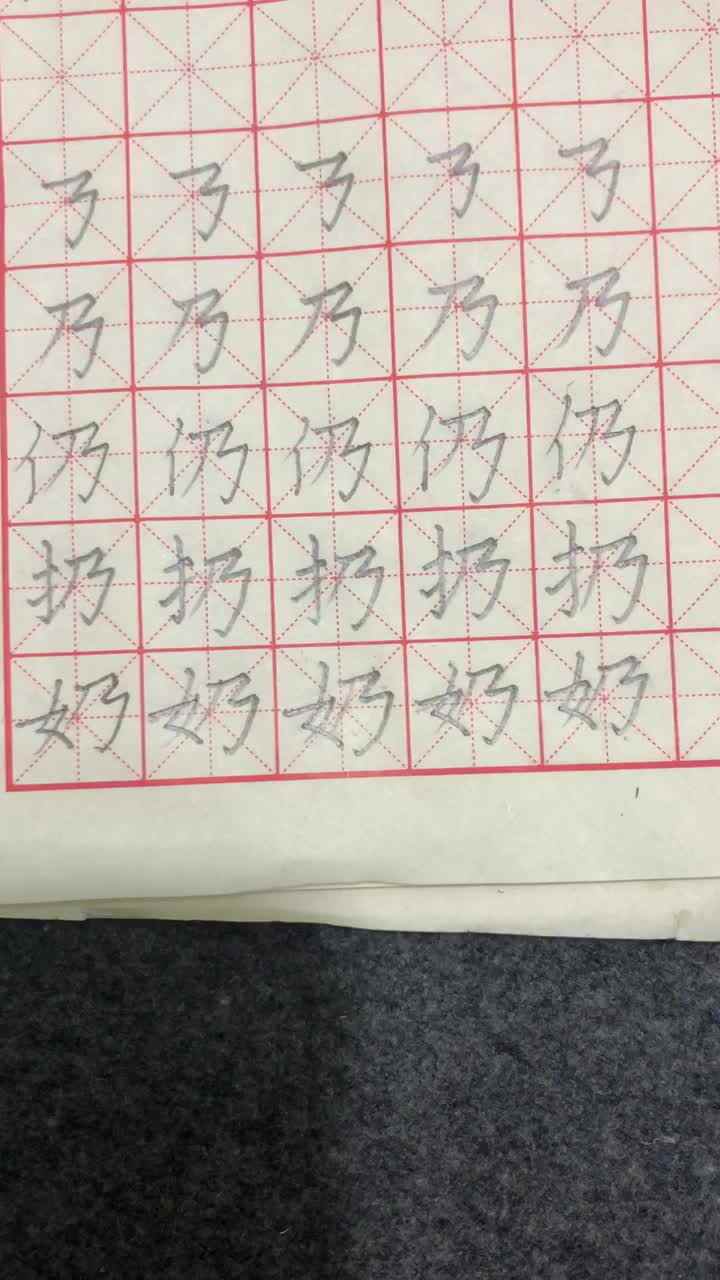 𠄎 𠄎 𠄎 𠄎 𠄎
乃 乃 乃 乃 乃
仍 仍 仍 仍 仍
扔 扔 扔 扔 扔
奶 奶 奶 奶 奶